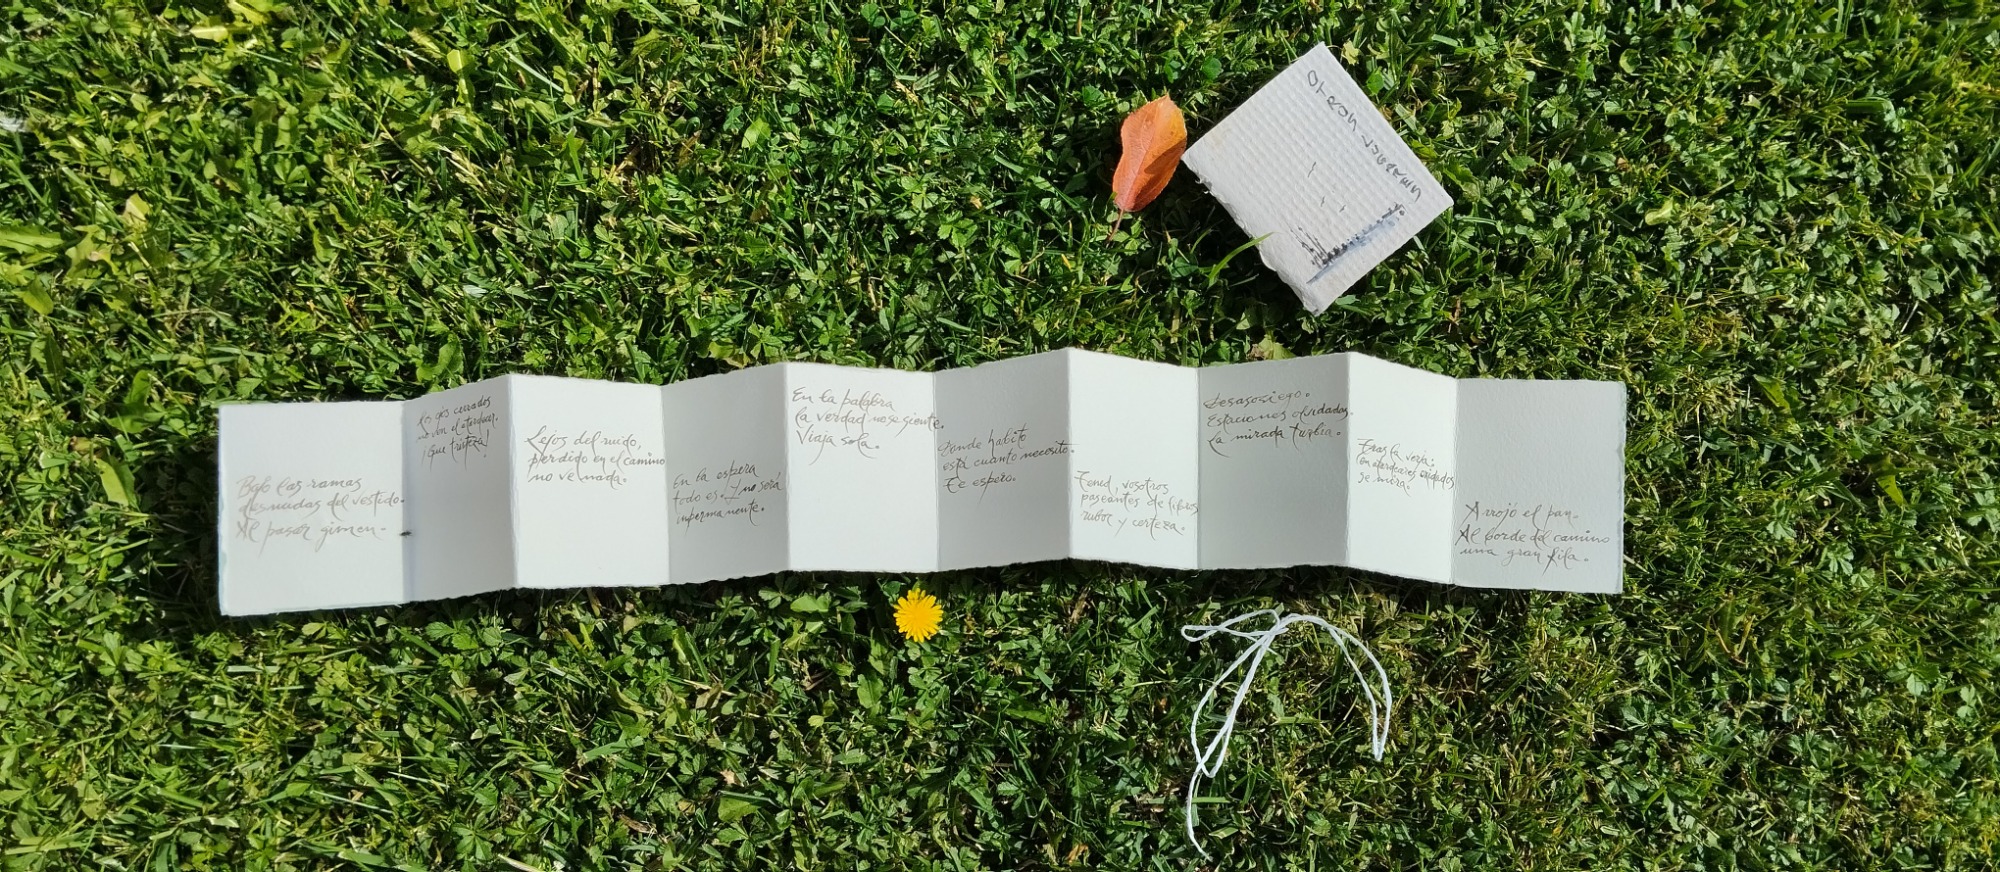 OTROS LUGARES
Bajo las ramas
desnudas del vestido.
Al pasar gimen.
Los ojos cerrados
no ven el atardecer.
¡Que tristeza!
Lejos del ruido,
perdido en el camino
no ve nada.
En la espera
todo es. Y no será
impermanente.
En la palabra
la verdad no se siente.
Viaja sola.
Donde habito
está cuanto necesito.
Te espero.
Tened, vosotros
paseantes de libros
rubor y certeza.
Desasosiego.
Estaciones olvidadas.
La mirada turbia.
Tras la verja.
En atardeceres
se mira.
Arrojó el pan.
Al borde del camino
una gran fila.